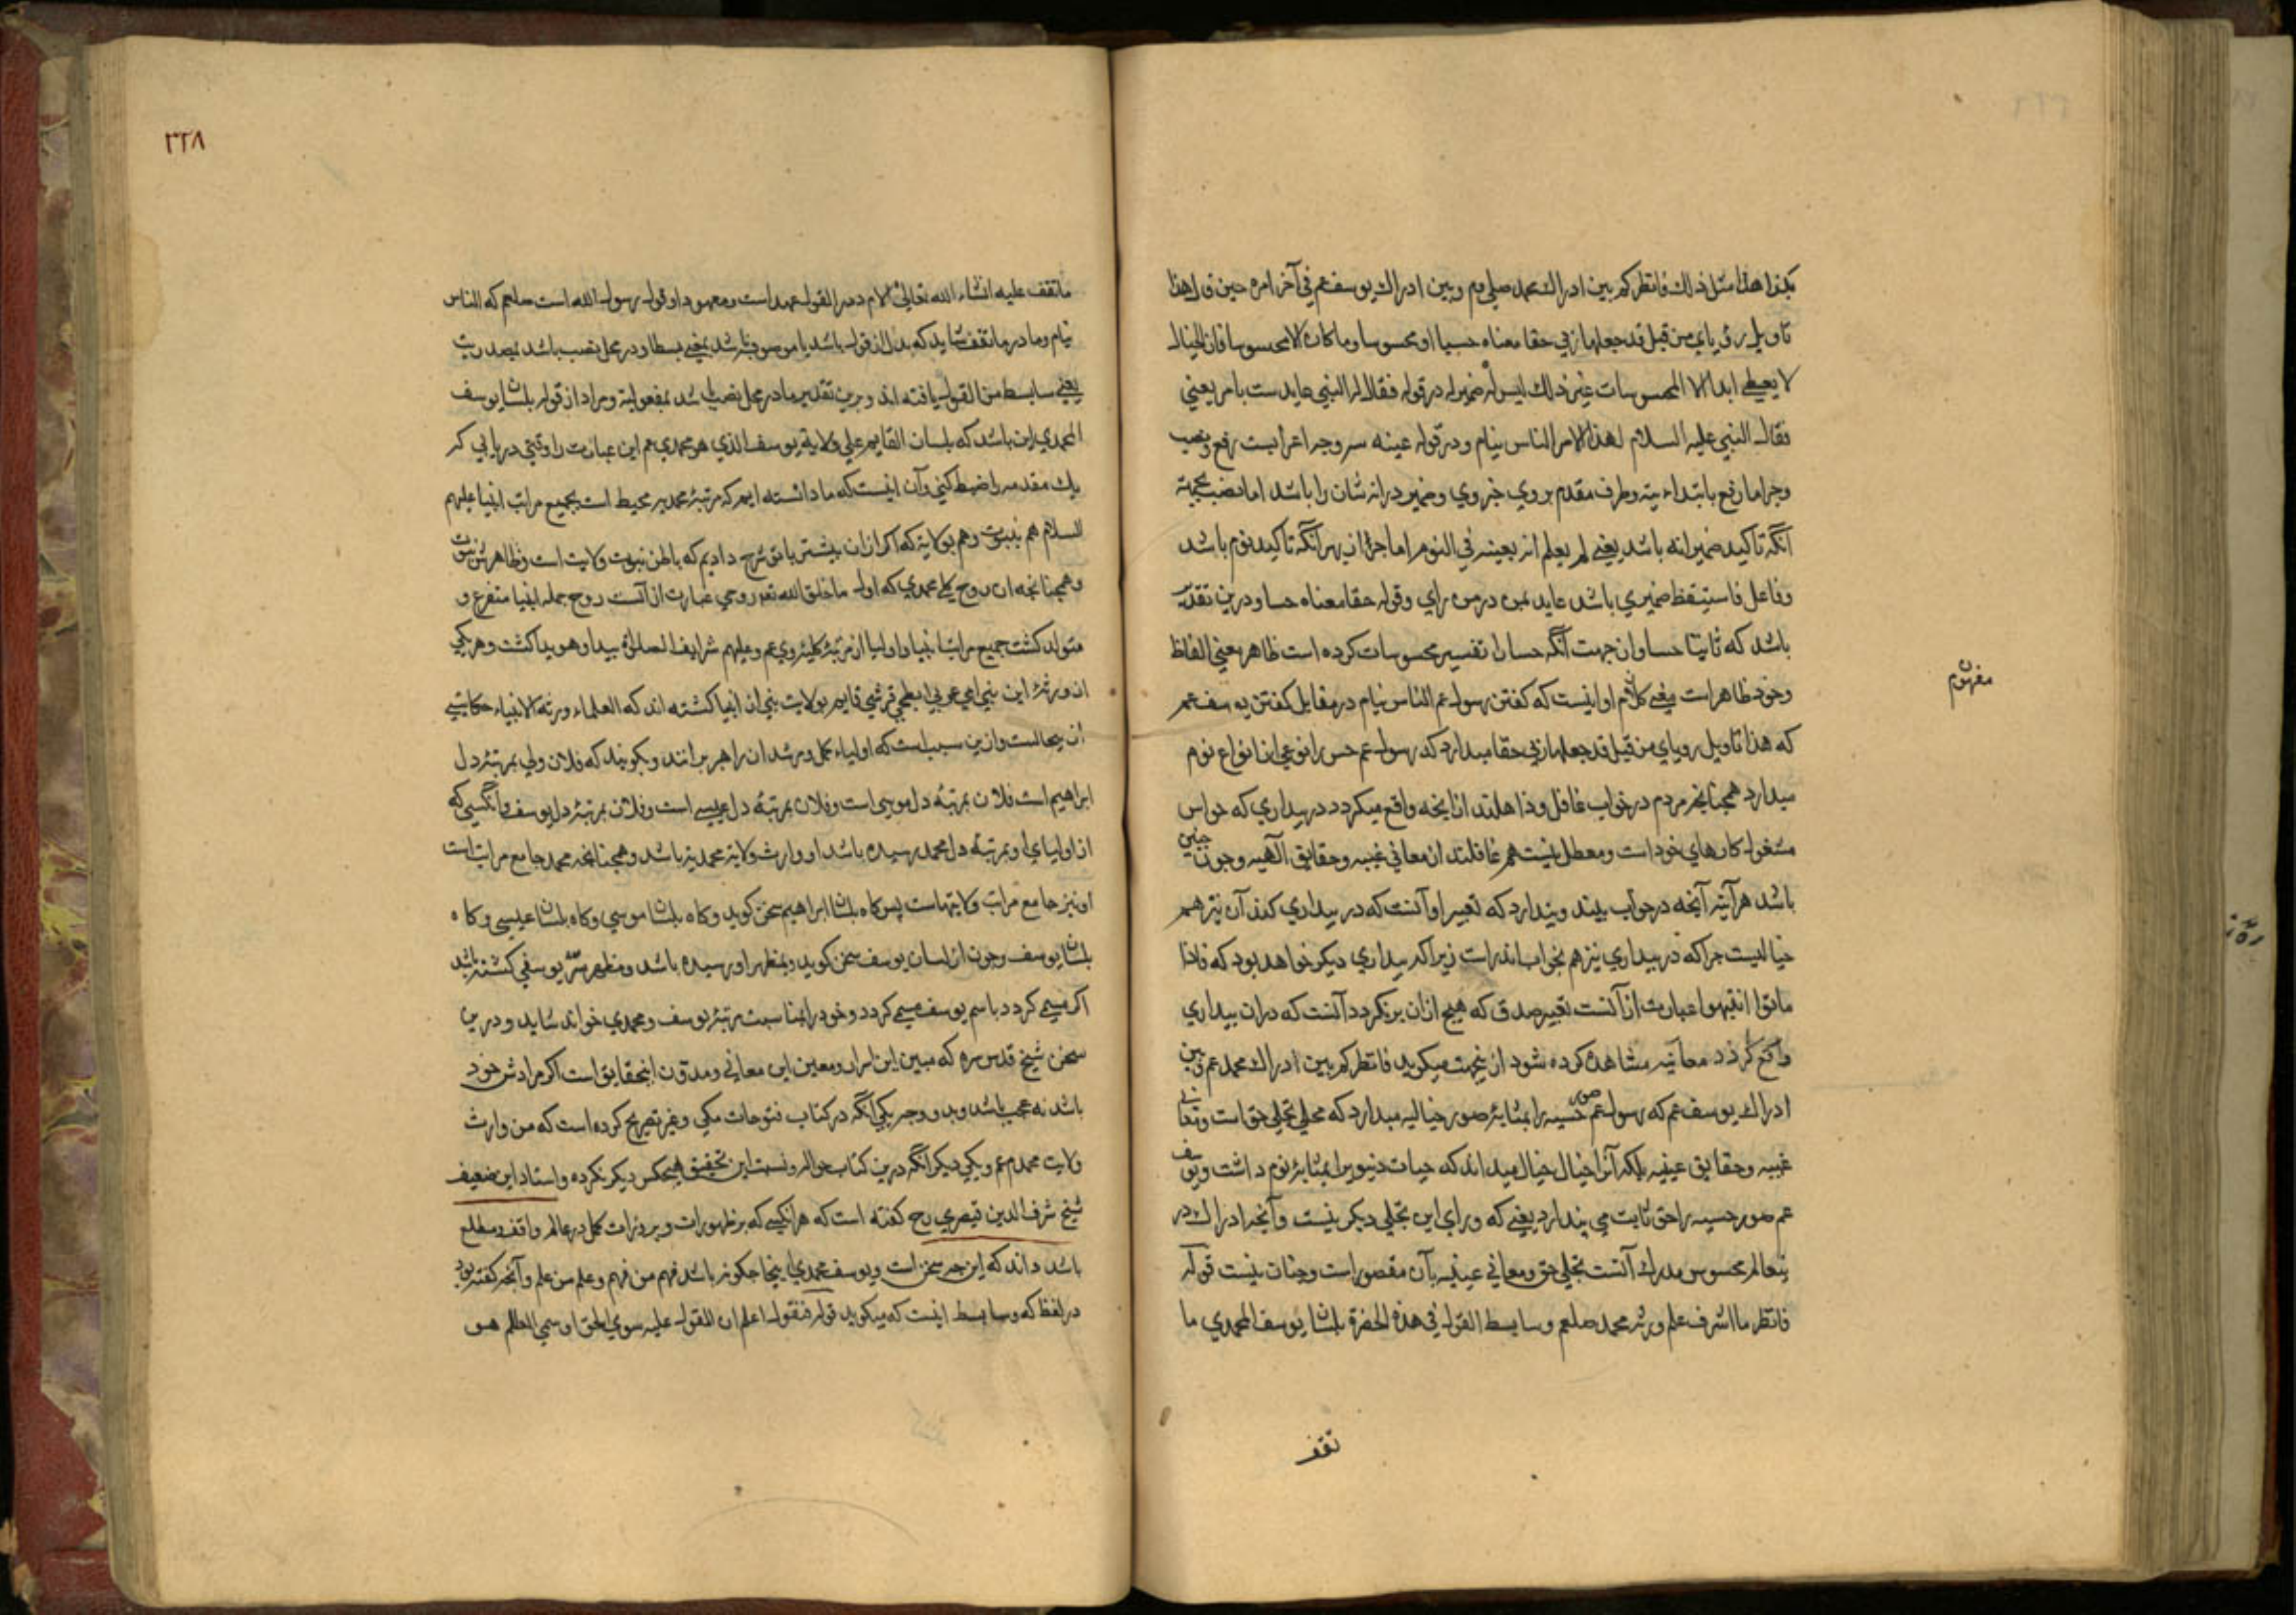 هذا مثل ذلك فانظر كم بين ادراك محمد صلي عم وبين ادراك يوسف عم في آخر امره حين قال هذا
تاويل رؤياي من قبل قد جعلها ربي حقا معناه حسيا اي محسوسا وما كان الا محسوسا فان الخيال
لا يعطي ابدا الا المحسوسات غير ذلك ليس له ضمير له در قوله فقال له النبي عايدست بامر يعني
فقال النبي عليه السلام لهذا الامر الناس نيام ودر قوله عينه سه وجه اعرابست رفع ونصب
وجر اما رفع بابتدائيته وظرف مقدم بروي خبر وي وضمير در انه شان را باشد اما نصب بجهة
آنكه تاكيد ضمير انه باشد يعني لم يعلم انه بعينه في النوم اما جر از بهر آنكه تاكيد نوم باشد
وفاعل فاستيقظ ضميري باشد عايد بمن در من راي وقوله حقا معناه حسا ودرين تقدير
باشد كه ثابتا حسا وان جهت آنكه حسا را تفسير محسوسات كرده است ظاهر يعني الفاظ
وخود ظاهر است يعني كلام او اينست كه كفتن رسول عم الناس نيام در مقابل كفتن يوسف عم
مفهوم
كه هذا تاويل روياي من قبل قد جعلها ربي حقا ميدارد كه رسول عم حس را نوعي از انواع نوم
ميدارد همچنانچه مردم در خواب غافل وذاهلند از انچه واقع ميكردد در بيداري كه حواس
مشغول كارهاي خود است ومعطل نيست هم غافلند از معاني غيبيه وحقايق الهيه وچون چنين
باشد هر آينه آنچه در خواب بيند وپندارد كه تعبير او آنست كه در بيداري كند آن نيز هم
خياليست چرا كه در بيداري نيز هم بخواب اندر است زيرا كه بيداري ديكر خواهد بود كه فاذا
ماتوا انتبهوا عبارت از آنست تعبير صدق كه هيچ ازان برنكردد آنست كه دران بيداري
واقع كردد معاينه مشاهده كرده شود از ينجهت ميكويد فانظر كم بين ادراك محمد عم وبين
ادراك يوسف عم كه رسول عم صور حسيه را بمثابه صور خياليه ميدارد كه مجلي تجلي حق است ومعاني
غيبيه وحقايق عينيه بلكه آنرا خيال خيال ميداند كه حيات دنيوي را بمثابه نوم داشت ويوسف
عم صور حسيه را حق ثابت مي پندارد يعني كه وراي اين تجلي ديكر نيست وآنچه ادراك در
ينعالم محسوس مدرك آنست تجلي حق ومعاني عينيه بآن مقصور است وچنان نيست قوله
فانظر ما اشرف علم ورثه محمد صلعم وسابسط القول في هذه الحضرة بلسان يوسف المحمدي ما
تقف
٢٢٨
ما تقف عليه انشاء الله تعالي لام در القول عهد است ومعهود او قول رسول الله است صلعم كه الناس
نيام وما در ما تقف شايد كه بدل از قول باشد يا موصوفه باشد بمعني بسطا ودر محل نصب باشد بمصدريت
يعني سابسط من القول يافته اند وبرين تقدير ما در محل نصب باشد بمفعولية ومراد از قوله بلسان يوسف
المحمدي اين باشد كه بلسان القايم علي ولاية يوسف الذي هو محمدي عم اين عبارت را وقتي دريابي كه
يك مقدمه را ضبط كني وآن اينست كه ما دانسته ايم كه مرتبه محمديه محيط است بجميع مراتب انبيا عليهم
السلام هم بنبوت وهم بولاية كه اكر ازان پيشتر باتو شرح داديم كه باطن نبوت ولايت است وظاهرش نبوت
وهمچنانچه ان روح كلي محمدي كه اول ما خلق الله تعر روحي عبارت از آنست روح جمله انبيا متفرع و
متولد كشت جميع مراتب انبيا واوليا از مرتبه كليه وي عم وعليهم شرايف الصلوة پيدا وهويدا كشت وهر يكي
ان ورثه اين نبي امي عربي ابطحي قرشي قايم بولايت نبي از انبيا كشته اند كه العلماء ورثه الانبياء حكايتي
ازين حالست وازين سبب است كه اولياء كمل ومرشدان راهبر برانند وبكويند كه فلان ولي بمرتبه دل
ابراهيم است فلان بمرتبه دل موسي است وفلان بمرتبه دل عيسي است وفلان بمرتبه دل يوسف وآنكسي كه
از اولياي او بمرتبه دل محمد رسيده باشد او وارث ولايته محمديه باشد وهمچنانچه محمد جامع مراتب است
او نيز جامع مراتب ولايتهاست پس كاه بلسان ابراهيم سخن كويد وكاه بلسان موسي وكاه بلسان عيسي وكاه
بلسان يوسف وچون از لسان يوسف سخن كويد وبمظهر او رسيده باشد ومظهر سر يوسفي كشته باشد
اكر مسمي كردد باسم يوسف مسمي كردد وخود را بمناسبت مرتبه يوسف ومحمدي خواند شايد ودرين
سخن شيخ قدس سره كه مبين اين اسرار ومعين اين معاني ومدون اينحقايق است اكر مرادش خود
باشد نه عجب باشد وبدو وجه يكي آنكه در كتاب فتوحات مكي وغيره تصريح كرده است كه من وارث
ولايت محمدم عم ويكي ديكر آنكه درين كتاب حواله ونسبت اين تحقيق بهيچكس ديكر نكرده واستاد اين ضعيف
شيخ شرف الدين قيصري رح كفته است كه هر انكسي كه بر ظهورات وبروزات كمل در عالم واقف ومطلع
باشد داند كه اين چه سخن است ويوسف محمدي اينجا چكونه باشد فهم من فهم وعلم من علم وآنچه كفته بود
در لفظ كه وسابسط اينست كه ميكويد قوله فنقول اعلم ان المقول عليه سوي الحق او مسمي العالم هو